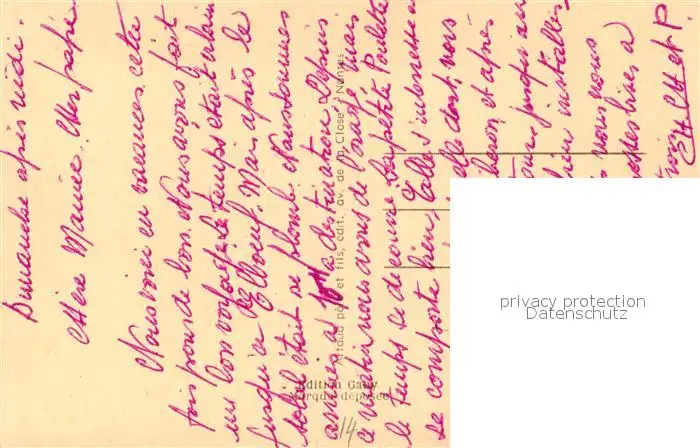 Dimanche après midi.
Chère Mamie. Cher papi
Nous voici en vacances cette
fois pour de bon. Nous avons fait
un bon voyage le temps était
jusqu'à Mais après le
soleil était de plomb Nous sommes
arrivés à destination Depuis
ce matin nous avons de l'orage mais
le temps se découvre La petite Paulette
se comporte bien, Elle s'intéresse
elle dort, vous
et après
jusqu'au
bien installés
nous nous
bises à
et P.
Artaud père et fils, édit., av. de la Close, Nantes
Edition Gaby
Marque déposée
14
privacy protection
Datenschutz